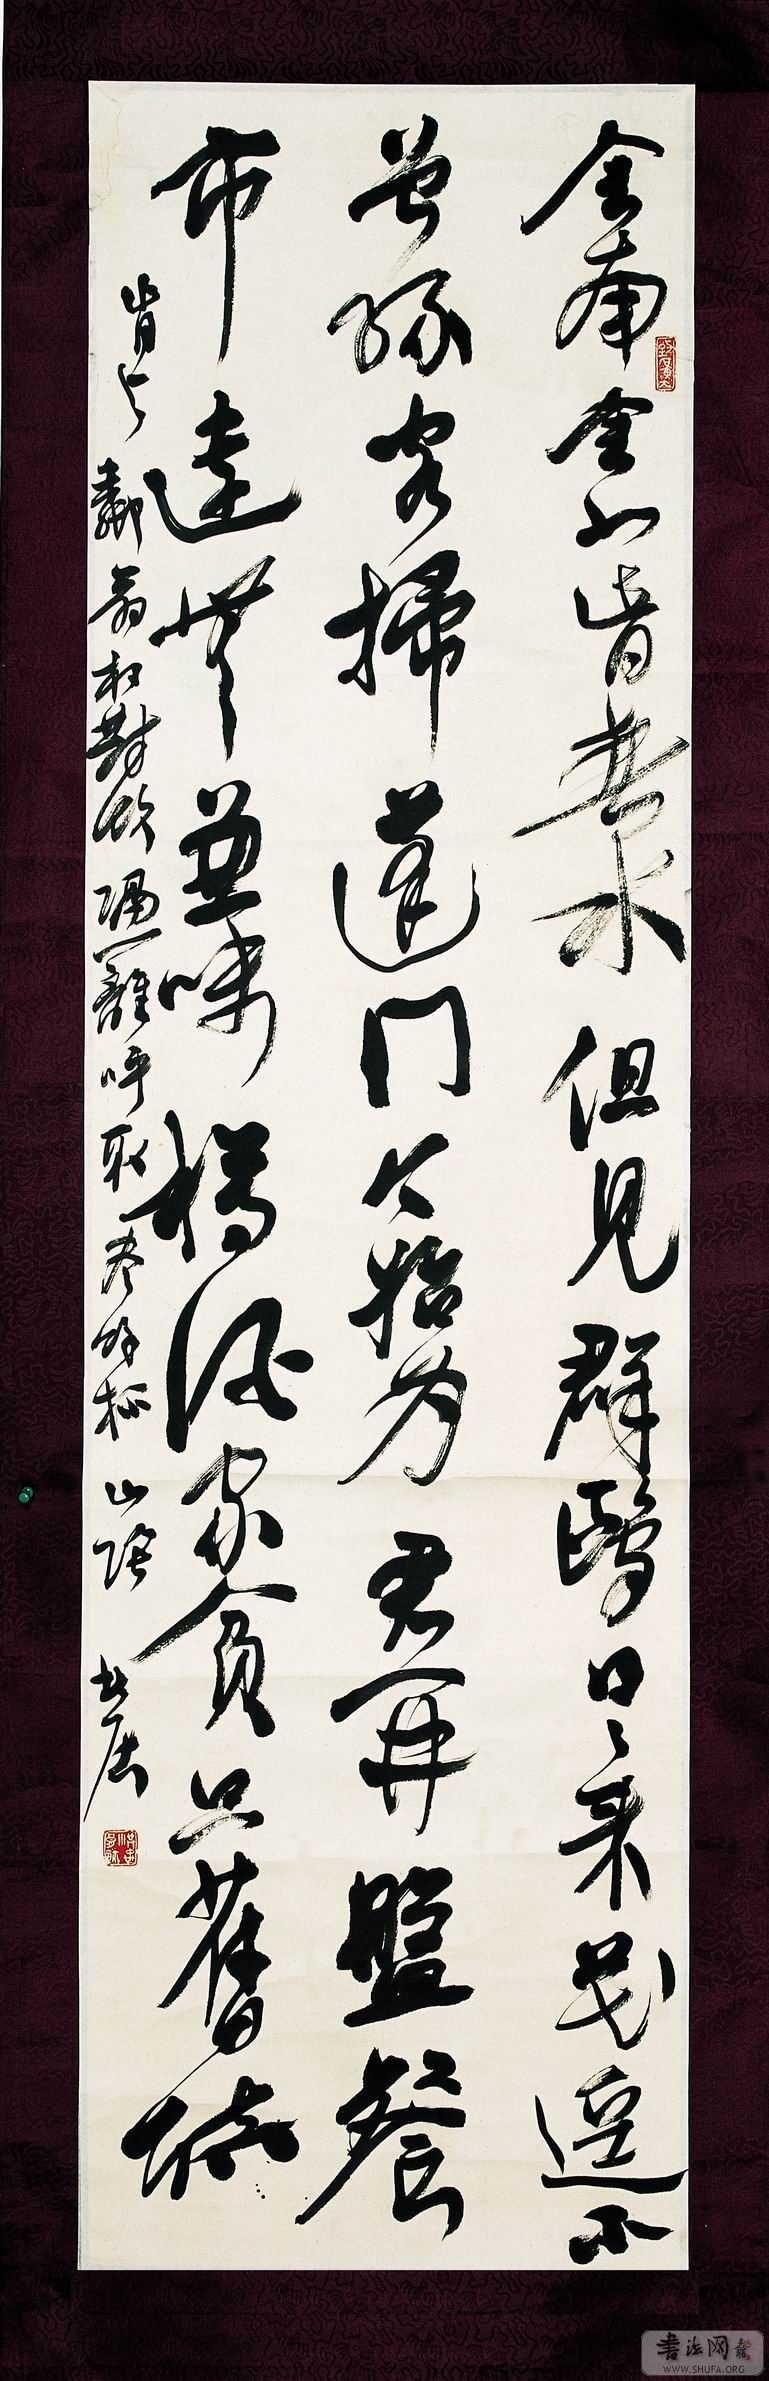 舍南舍北皆春水但見群鷗日々來花逕不
曾緣客掃蓬門今始為君開盤餐
市遠無兼味樽酒家貧只舊醅
肯与鄰翁相對飲隔離呼取盡餘杯 山陰
書法网
WWW.SHUFA.ORG